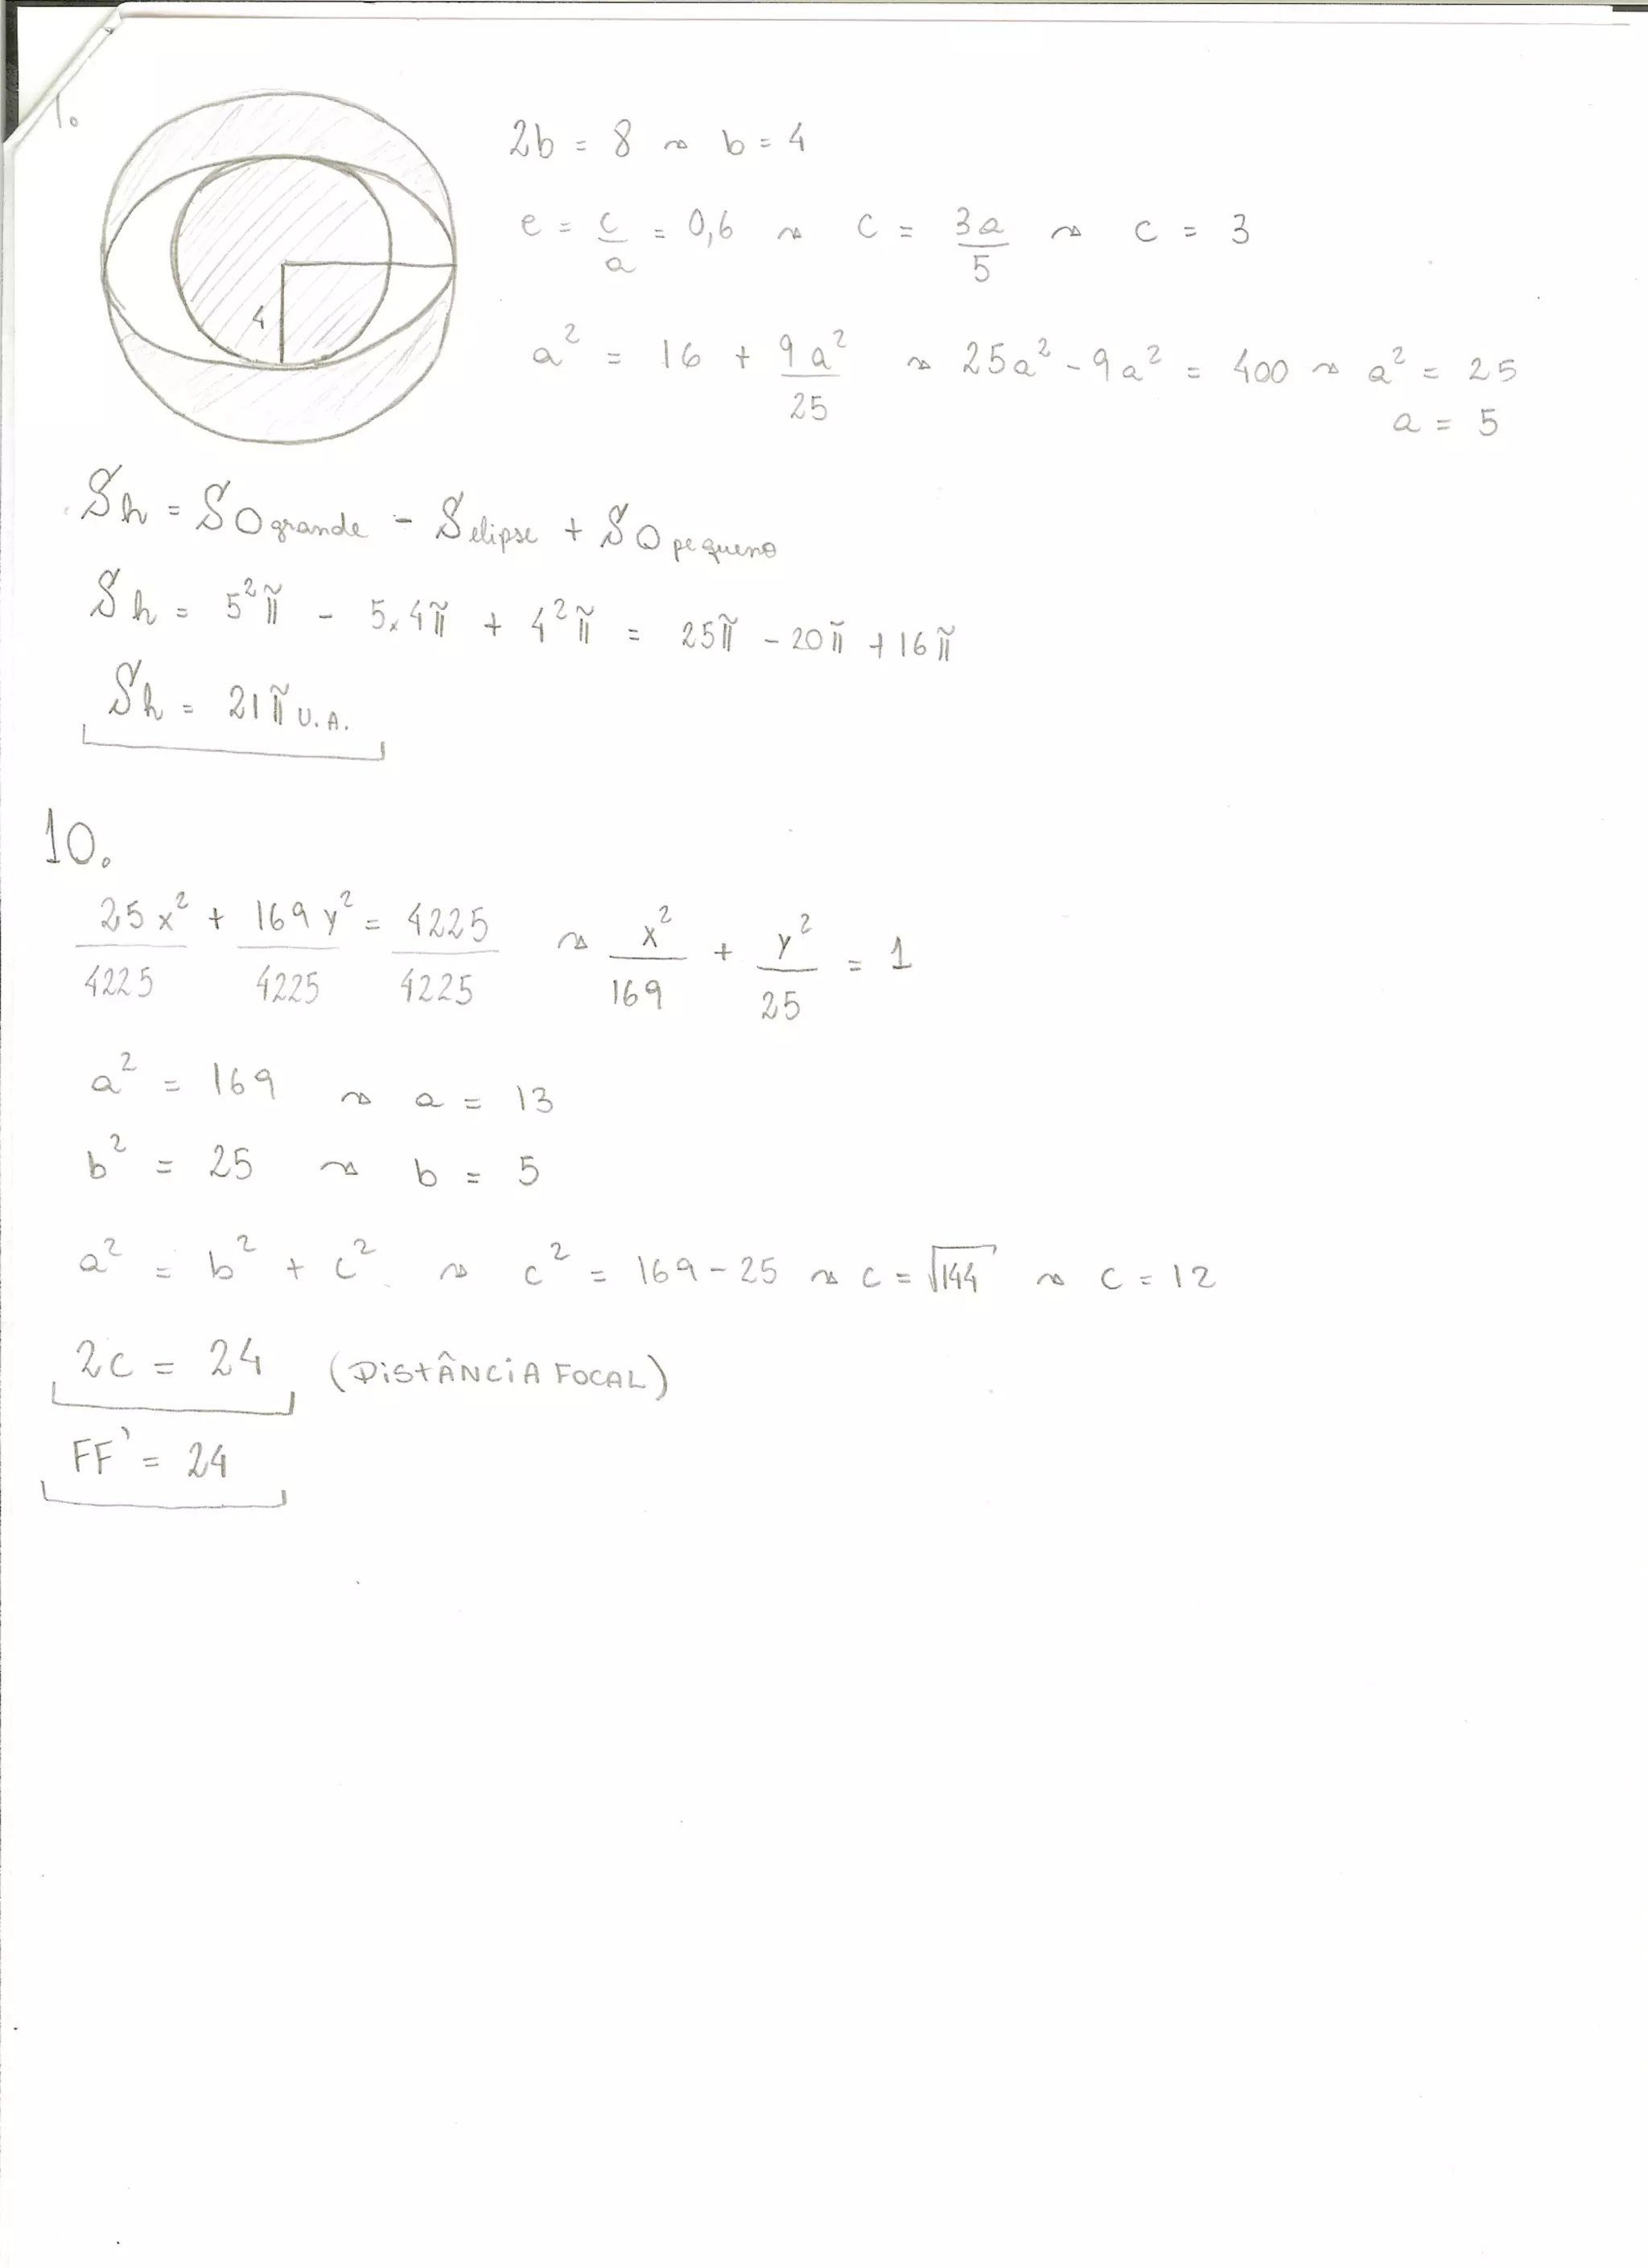 1.
2b = 8 ⇝ b = 4
e = c/a = 0,6 ⇝ c = 3a/5 ⇝ c = 3
4
a² = 16 + 9a²/25 ⇝ 25a² - 9a² = 400 ⇝ a² = 25
a = 5
Sh = S○grande - Selipse + S○pequeno
Sh = 5²π - 5x4π + 4²π = 25π - 20π + 16π
Sh = 21π U.A.
10.
25x²/4225 + 169y²/4225 = 4225/4225 ⇝ x²/169 + y²/25 = 1
a² = 169 ⇝ a = 13
b² = 25 ⇝ b = 5
a² = b² + c² ⇝ c² = 169 - 25 ⇝ c = √144 ⇝ c = 12
2c = 24 (DISTÂNCIA FOCAL)
FF' = 24